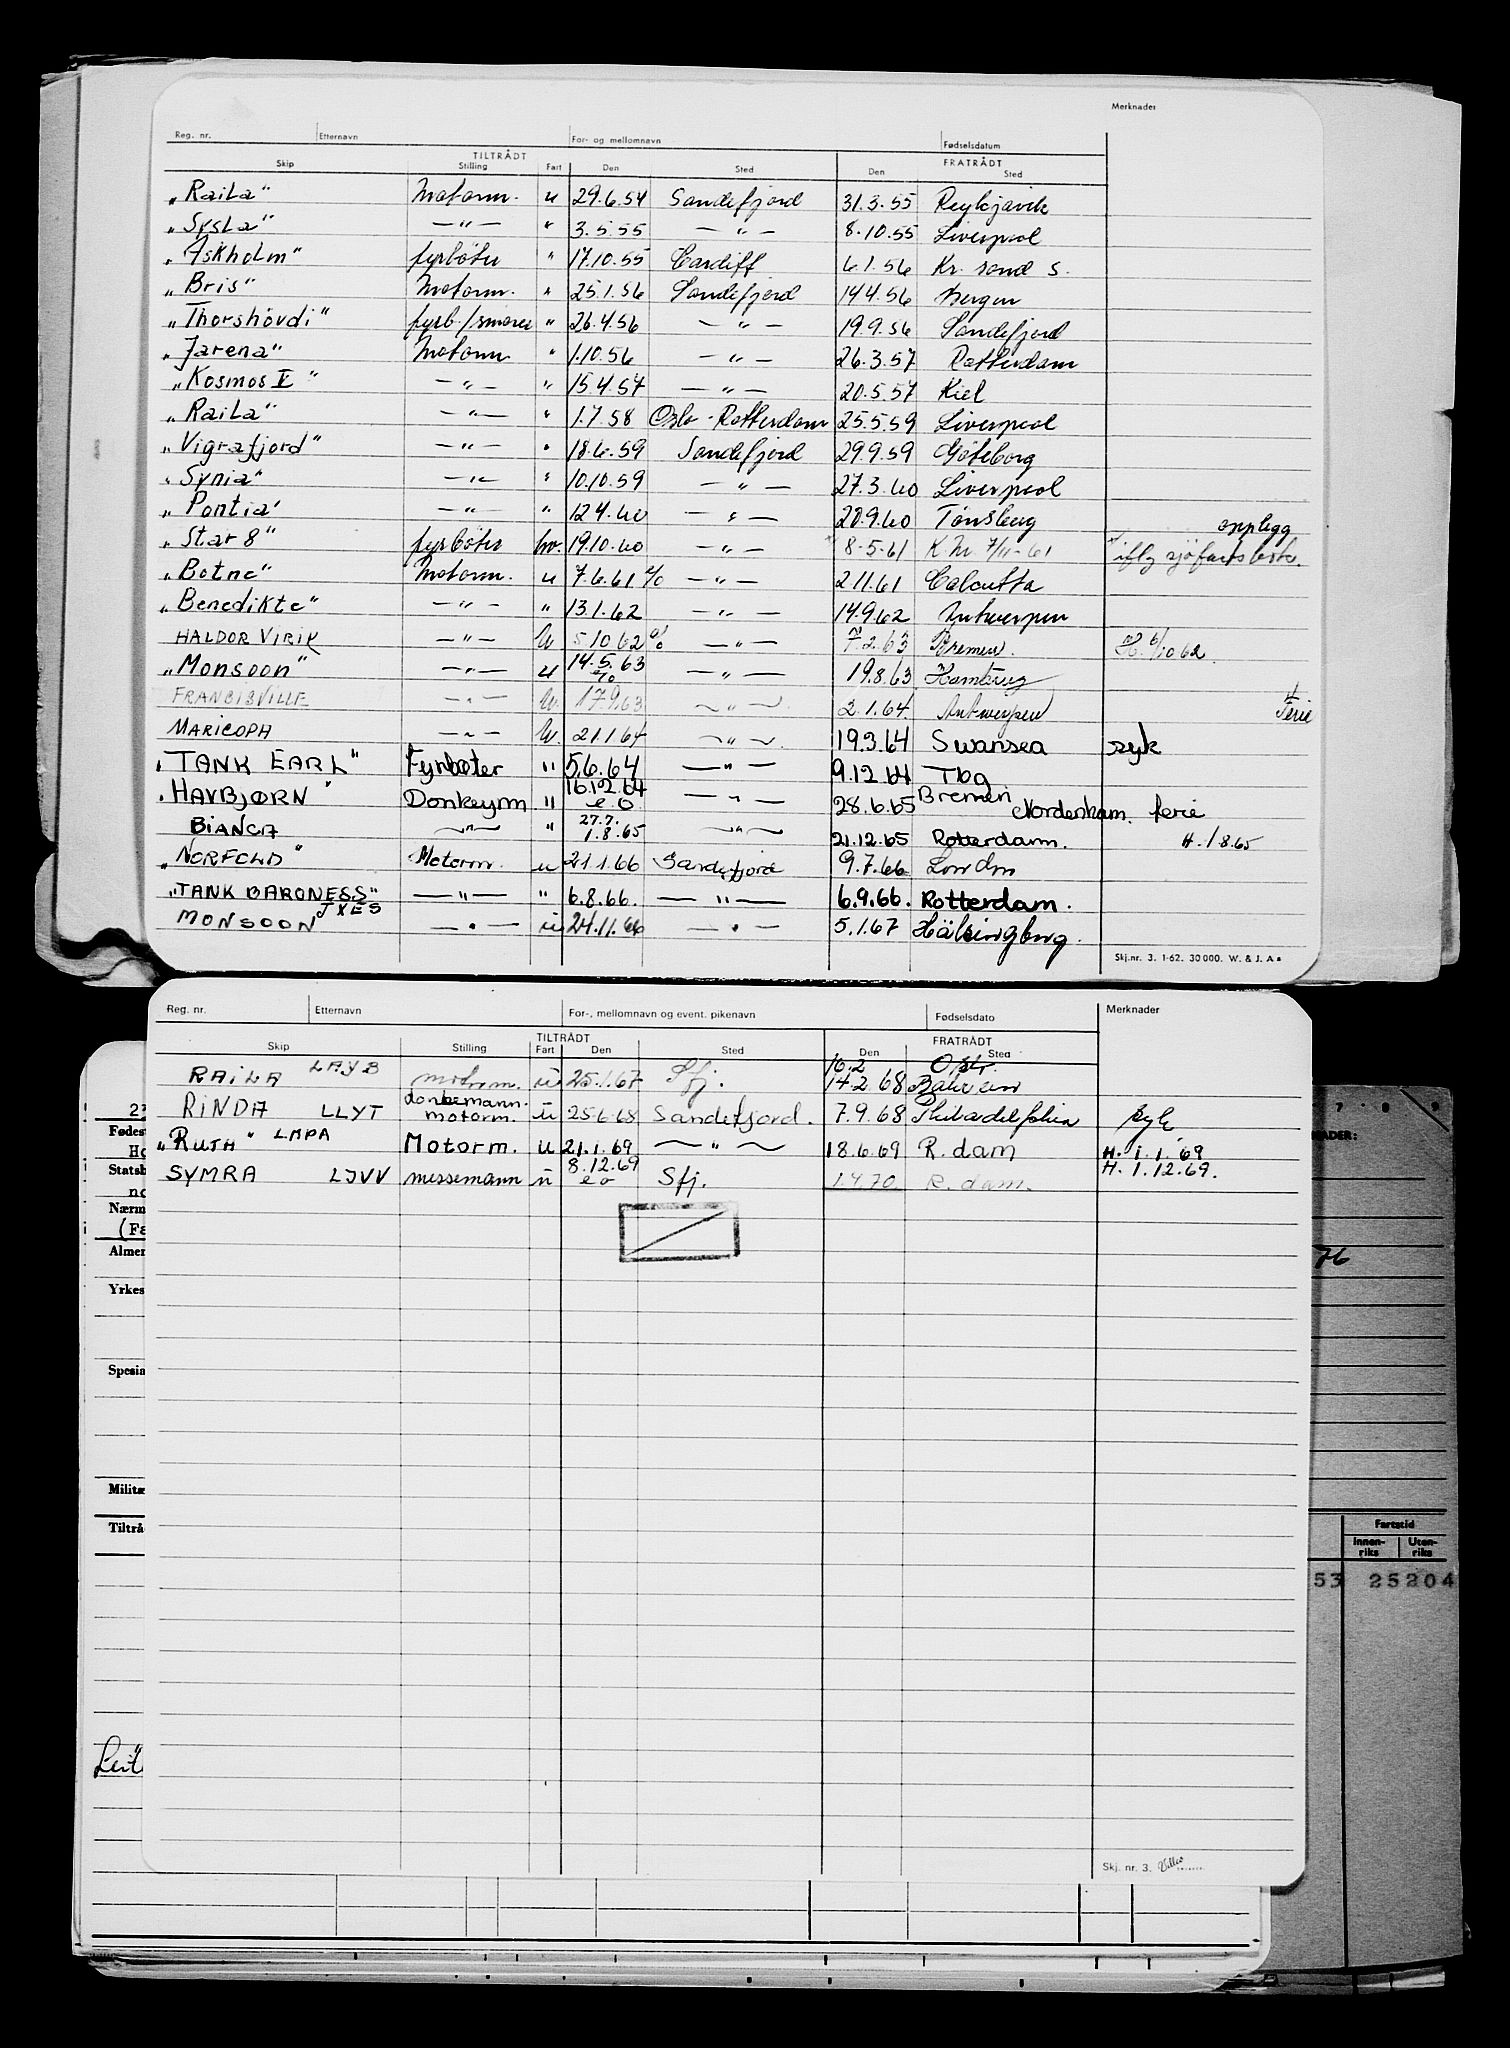 Merknader
Reg. nr. Etternavn For- og mellomnavn Fødselsdatum
TILTRÅDT FRATRÅDT
Skip Stilling Fart Den Sted Den Sted
"Raila" Motorm. u 29.6.54 Sandefjord 31.3.55 Reykjavik
"Sysla" — " — " 3.5.55 — " — 8.10.55 Liverpool
"Askholm" fyrbøter " 17.10.55 Cardiff 6.1.56 Kr. sand S.
"Bris" Motorm. " 25.1.56 Sandefjord 14.4.56 Bergen
"Thorshövdi" fyrb./smører " 26.4.56 — " — 19.9.56 Sandefjord
"Jarena" Motorm " 1.10.56 — " — 26.3.57 Rotterdam
"Kosmos V" — " — " 15.4.57 — " — 20.5.57 Kiel
"Raila" — " — " 1.7.58 Oslo - Rotterdam 25.5.59 Liverpool
"Vigrafjord" — " — " 18.6.59 Sandefjord 29.9.59 Göteborg
"Synia" — " — " 10.10.59 — " — 27.3.60 Liverpool
"Pontia" — " — " 12.4.60 — " — 20.9.60 Tønsberg
opplegg
"Star 8" fyrbøter hv. 19.10.60 — " — 8-5-61 K.M 7/11-61 iflg sjøfartsbok.
"Botne" Motorm. u 7.6.61 % — " — 2.11.61 Calcutta
"Benedikte" — " — " 13.1.62 — " — 14.9.62 Antwerpen
HALDOR VIRIK — " — U 5.10.62 % — " — 7.2.63 Bremen. H. 6/10 62.
"Monsoon" — " — u 14.5.63 % — " — 19.8.63 Hamburg
FRANCISVILLE — " — U. 17.9.63 — " — 2.1.64 Antwerpen Ferie
MARICOPA — " — U. 21.1.64 — " — 19.3.64 Swansea syk
"TANK EARL" Fyrbøter " 5.6.64 — " — 9.12.64 Tbg
"HAVBJØRN" Donkeym " 16.12.64 e.o — " — 28.6.65 Bremen Nordenham. ferie
BIANCA — " — " 27.7. 1.8.65 — " — 21.12.65 Rotterdam. H. 1.8.65
"NORFOLD" Motorm. u 21.1.66 Sandefjord 9.7.66 London
"TANK BARONESS" — " — " 6.8.66. — " — 6.9.66. Rotterdam.
MONSOON JXES — " — ü 24.11.66 — " — 5.1.67 Hälsingborg.
Skj.nr. 3. 1-62. 30 000. W. & J. A s
Reg. nr. Etternavn For-, mellomnavn og event. pikenavn Fødselsdato Merknader
TILTRÅDT FRATRÅDT
Skip Stilling Fart Den Sted Den Sted
RAILA LAYB motorm. ü 25.1.67 Sfj. 16.2 14.2.68 Bahrein
RINDA LLYT donkemann. motorm. ü 25.6.68 Sandefjord. 7.9.68 Philadelphia syk
"RUTH" LMPA Motorm. u 21.1.69 — " — 18.6.69 R.dam H. 1.1.69
SYMRA LJVV messemann ü 8.12.69 e o Sfj. 1.4.70 R.dam. H. 1.12.69.
Skj. nr. 3.
27
Fødest
Ho
Statsb
no
Nærm
(Fa
Almen
Yrkes
Spesia
Milita
Tiltrå
7 8 9
NADER:
76
Fartstid
Innen-riks Uten-riks
53 25204